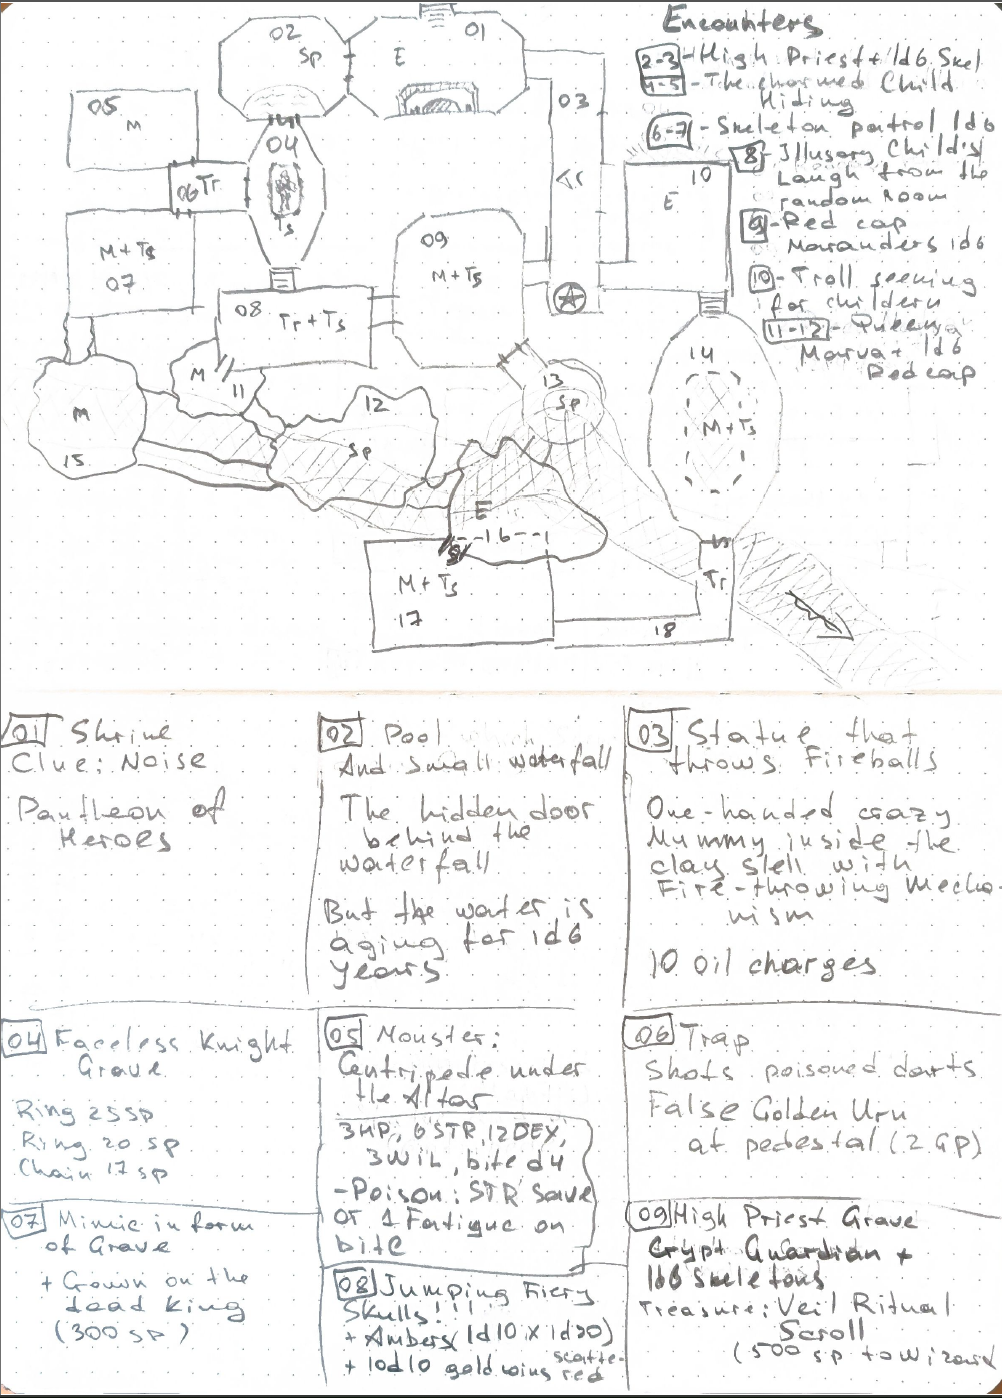 Encounters
2-3 - High Priest + 1d6 Skel
4-5 - The charmed Child
Hiding
6-7 - Skeleton patrol 1d6
8 - Illusory Child's
Laugh from the
random Room
9 - Red cap
Marauders 1d6
10 - Troll seening
for childern
11-12 - Queen
Marva + 1d6
Red cap
02
Sp
E
01
05
M
03
Tr
04
Ts
06 Tr
10
E
M+Ts
07
09
M+Ts
08
Tr+Ts
M
11
12
Sp
13
Sp
14
M+Ts
M
15
E
16
M+Ts
17
Tr
18
01 Shrine
Clue: Noise
Pantheon of
Heroes
02 Pool
And small waterfall
The hidden door
behind the
waterfall
But the water is
aging for 1d6
years
03 Statue that
throws Fireballs
One-handed crazy
Mummy inside the
clay slell with
Fire-throwing Mecha-
nism
10 oil charges
04 Faceless Knight
Grave
Ring 25 sp
Ring 20 sp
Chain 17 sp
05 Monster:
Centripede under
the Altar
3HP, 6 STR, 12 DEX,
3 WIL, bite d4
-Poison: STR Save
or 1 Fatigue on
bite
06 Trap
Shots poisoned darts
False Golden Urn
at pedestal (2 GP)
07 Mimic in form
of Grave
+ Crown on the
dead King
(300 sp)
08 Jumping Fiery
Skulls!!!
+ Ambers (1d10 x 1d20)
+ 10d10 gold coins scatte-
red
09 High Priest Grave
Crypt Guardian +
1d6 Skeletons
Treasure: Veil Ritual
Scroll
(500 sp to wizard